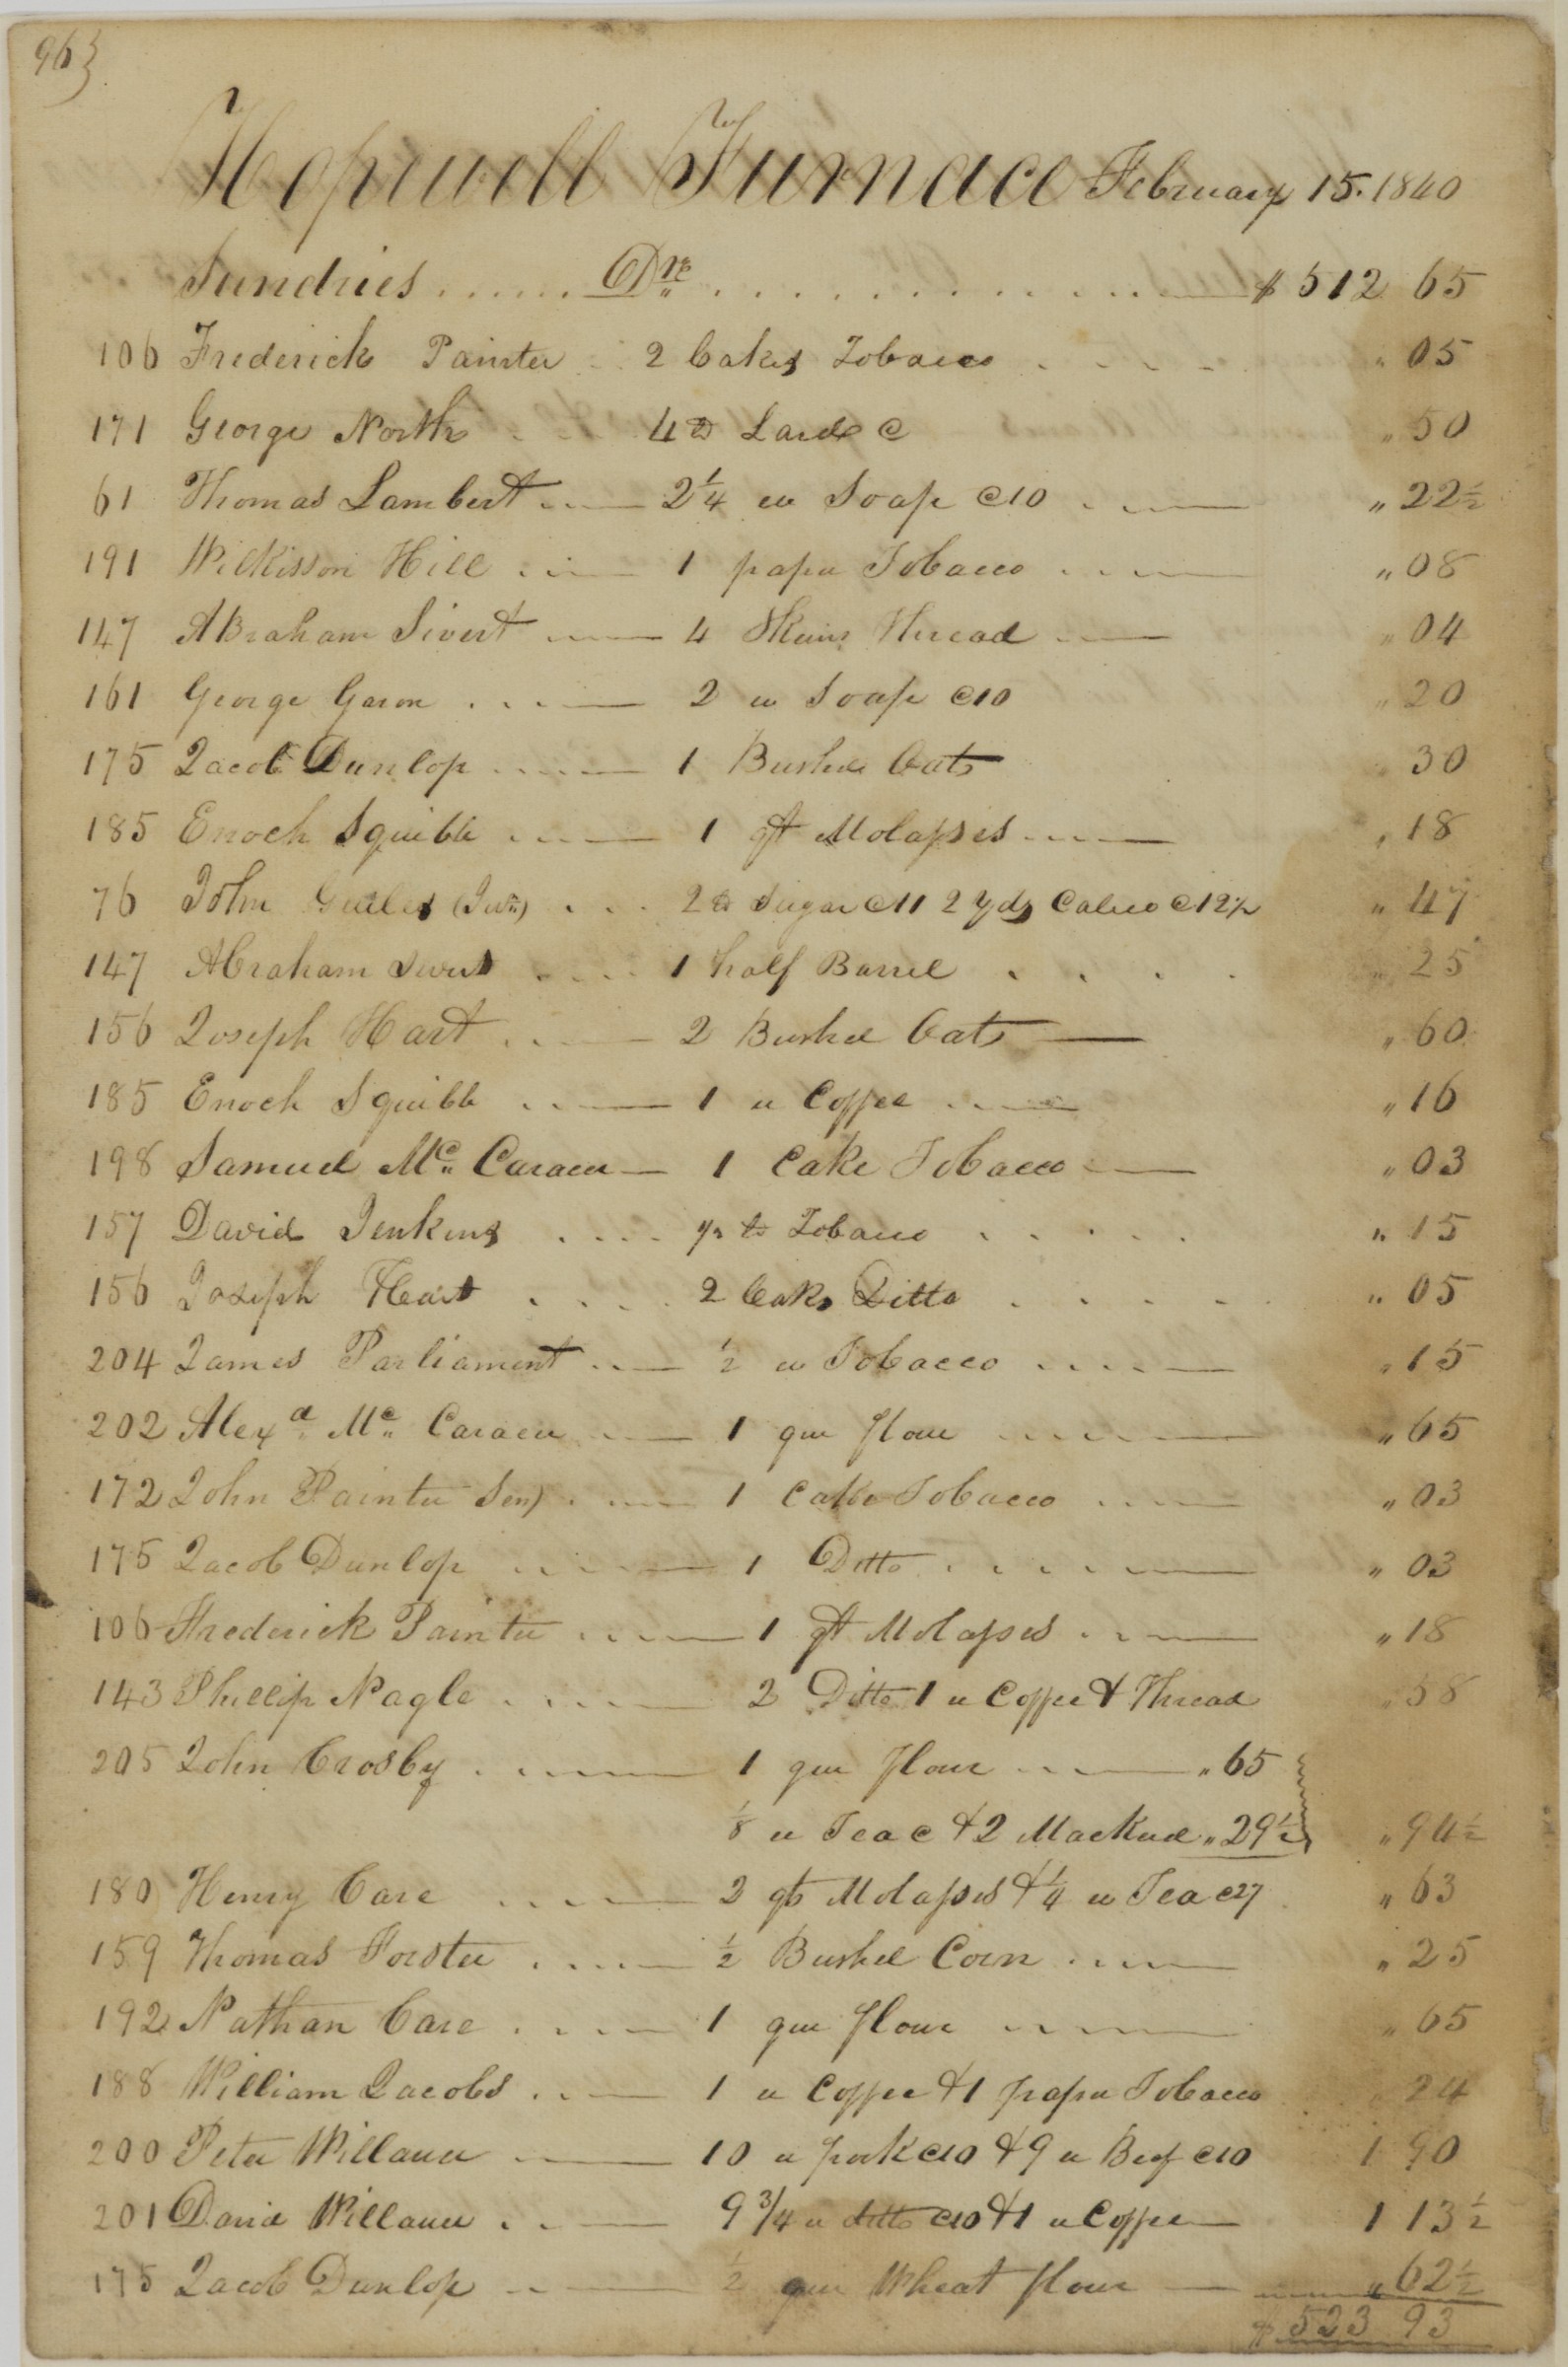 963
Hopewell Furnace February 15. 1840
Sundries ...... Drs. .............. $ 512 65
106 Frederick Painter .. 2 Cakes Tobacco . . . . " 05
171 George North . . . 4 lb Lard @ " 50
61 Thomas Lambert ... 2 1/4 " Soap @10 ... " 22 1/2
191 Wilkisson Hill ... 1 paper Tobacco ... " 08
147 Abraham Sivert ... 4 Skeins Thread ... " 04
161 George Garon .... 2 " Soap @10 " 20
175 Jacob Dunlop ..... 1 Bushel Oats 30
185 Enoch Squibb .... 1 qt Molasses .... " 18
76 John (Jun) . . . 2 lb Sugar @11 2 Yds Calico @12 1/2 " 47
147 Abraham Sivert .... 1 half Barrel . . . . " 25
156 Joseph Hart ... 2 Bushel Oats — " 60
185 Enoch Squibb ... 1 " Coffee ... " 16
198 Samuel Mc. Caraer — 1 Cake Tobacco — " 03
157 David Jenkins .... 1/2 lb Tobacco . . . . . " 15
156 Joseph Hart . . . . 2 Caks Ditto . . . . . " 05
204 James Parliament ... 1/2 " Tobacco .... " 15
202 Alexd. Mc. Caraer ... 1 qur flour .... " 65
172 John Painter Sen) .... 1 Cake Tobacco ... " 03
175 Jacob Dunlop .... 1 Ditto ...... " 03
106 Frederick Painter .... 1 qt Molasses .... " 18
143 Phillip Nagle .... 2 Ditto 1 " Coffee & Thread " 58
205 John Crosby .... 1 qur flour .... " 65
1/8 " Tea @ & 2 Mackrel " 29 1/2 " 94 1/2
180 Henry Care .... 2 qts Molasses & 1/4 " Tea @27 " 63
159 Thomas Forster .... 1/2 Bushel Corn .... " 25
192 Nathan Care .... 1 qur flour .... " 65
188 William Jacobs ... 1 " Coffee & 1 paper Tobacco " 24
200 Peter Willauer — 10 " pork @10 & 9 " Beef @10 1 90
201 David Willauer ... 9 3/4 " ditto @10 & 1 " Coffee — 1 13 1/2
175 Jacob Dunlop ... 1/2 qur Wheat flour — " 62 1/2
$ 523 93